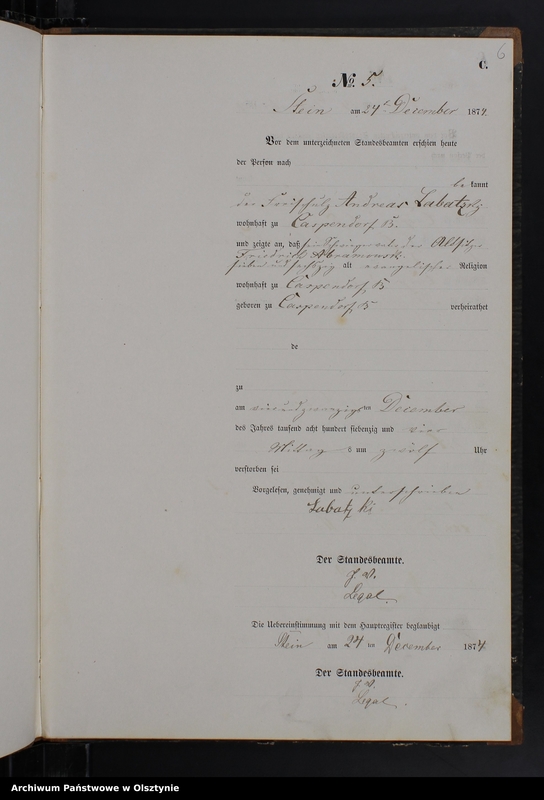 6
C.
No 5.
Stein am 24ten December 1874.
Vor dem unterzeichneten Standesbeamten erschien heute
der Person nach
be kannt
der Andreas Labatzki
wohnhaft zu Caspendorf B.
und zeigte an, daß sein Schwiegervater der Altsitzer
Friedrich Abramowski
sieben und sechzig alt evangelischer Religion
wohnhaft zu Caspendorf B
geboren zu Caspendorf B verheirathet
de
zu
am vierundzwanzigsten December
des Jahrs tausend acht hundert siebenzig und vier
Mittag s um zwölf Uhr
verstorben sei
Vorgelesen, genehmigt und unterschrieben
Labatzki
Der Standesbeamte.
J. V.
Legal.
Die Uebereinstimmung mit dem Hauptregister beglaubigt
Stein am 24 ten December 1874.
Der Standesbeamte.
J. V.
Legal.
Archiwum Państwowe w Olsztynie